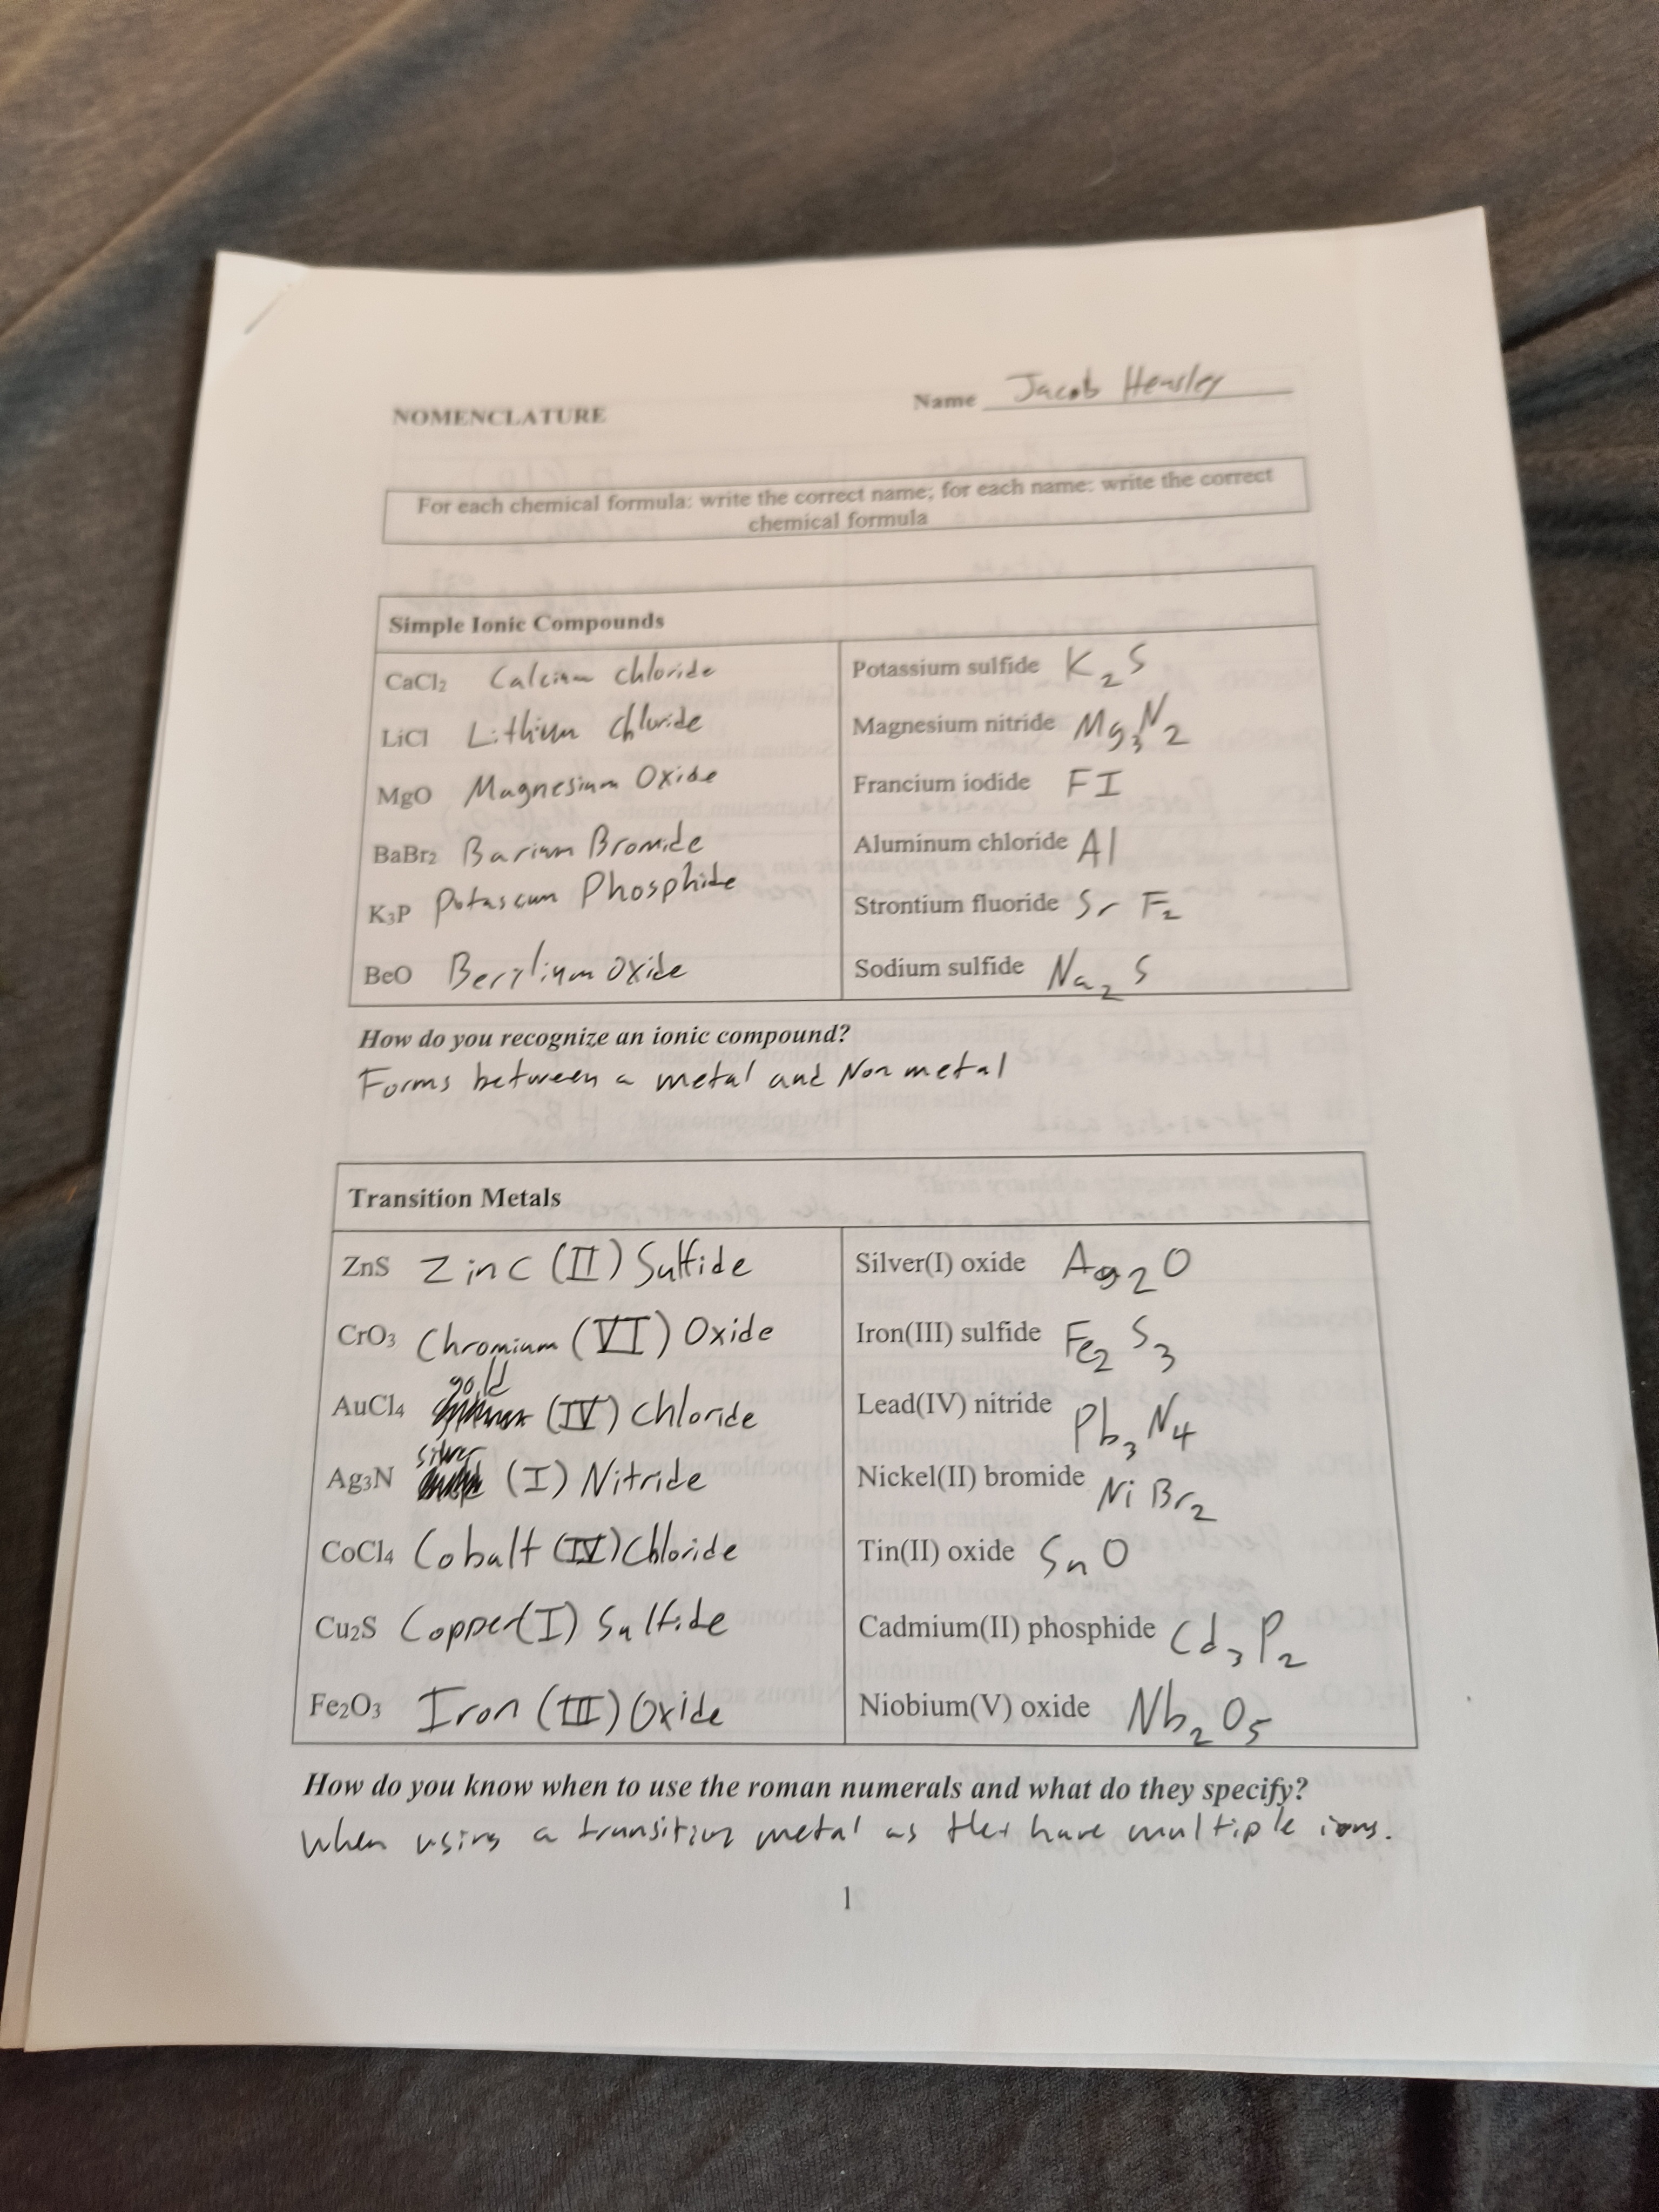 Name Jacob Hensley
NOMENCLATURE
For each chemical formula: write the correct name; for each name: write the correct
chemical formula
Simple Ionic Compounds
CaCl₂ Calcium chloride
Potassium sulfide K₂S
LiCl Lithium Chloride
Magnesium nitride Mg₃N₂
MgO Magnesium Oxide
Francium iodide FI
BaBr₂ Barium Bromide
Aluminum chloride Al
K₃P Potascum Phosphide
Strontium fluoride Sr F₂
BeO Berylium oxide
Sodium sulfide Na₂ S
How do you recognize an ionic compound?
Forms between a metal and Non metal
Transition Metals
ZnS Zinc (II) Sulfide
Silver(I) oxide Ag₂O
CrO₃ Chromium (VI) Oxide
Iron(III) sulfide Fe₂ S₃
AuCl₄ gold (IV) Chloride
Lead(IV) nitride Pb₃ N₄
Ag₃N silver (I) Nitride
Nickel(II) bromide Ni Br₂
CoCl₄ Cobalt (IV) Chloride
Tin(II) oxide Sn O
Cu₂S Copper(I) Sulfide
Cadmium(II) phosphide Cd₃ P₂
Fe₂O₃ Iron (III) Oxide
Niobium(V) oxide Nb₂ O₅
How do you know when to use the roman numerals and what do they specify?
When using a transition metal as they have multiple ions.
1